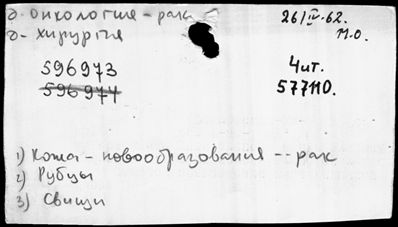 д. онкология - рак
26/IV-62.
д- хирургія
п.о.
596973
Чит.
596974
577110.
1) Кожа - новообразования -- рак
2) Рубцы
3) Свищи